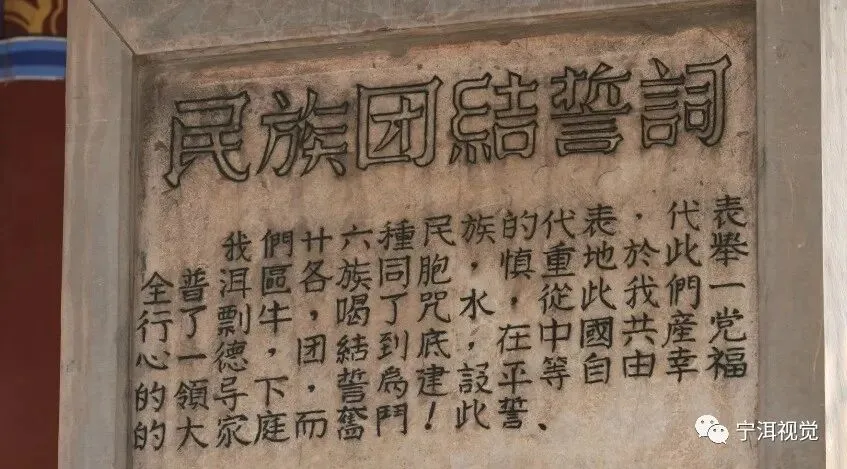 民族团結誓詞
我們廿六種民族的代表，代表
全普洱區各族同胞，慎重地於此舉
行了剽牛，喝了咒水，從此我們一
心一德，团結到底，在中國共產党
的領导下，誓爲建設平等自由幸福
的大家庭而奮鬥！此誓、
宁洱视觉